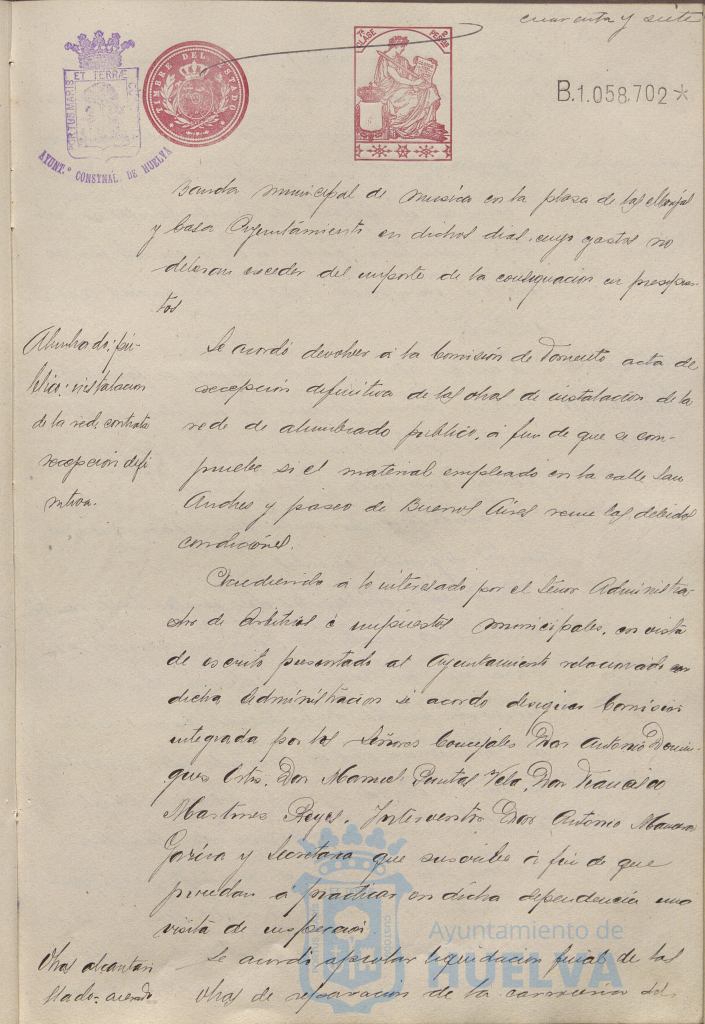 cuarenta y siete
7ª CLASE
PESETAS
TIMBRE DEL ESTADO
PORTUS MARIS ET TERRÆ CUSTODIA
AYUNT.º CONSTNAL. DE HUELVA
B.1.058.702*
Banda municipal de musica en la plaza de las Monjas
y Casa Ayuntamiento en dichos dias, cuyo gastos no
deberan exceder del importe de la consignacion en presupues-
tos
Alumbrado pú-
blico: instalacion
de la red, contrata
recepción defi
nitiva.
Se acordó devolver á la Comisión de Fomento acta de
recepción definitiva de las obras de instalacion de la
red de alumbrado público, á fin de que se com-
pruebe si el material empleado en la calle San
Andres y paseo de Buenos Aires reune las debidas
condiciones.
Accediendo á lo interesado por el Señor Administra-
dor de Arbitrios é impuestos municipales, en vista
de escrito presentado al Ayuntamiento relacionado con
dicha Administracion se acordo designar Comision
integrada por los Señores Concejales Don Antonio Domin-
guez Ortiz, Don Manuel Puntas Vela, Don Francisco
Martinez Reyes, Interventor Don Antonio
Garcia y Secretario que suscribe á fin de que
puedan á practicar en dicha dependencia una
visita de inspeccion.
Obras alcantari
llado: acuerdo
Se acordó aprobar liquidacion final de las
obras de reparacion de la carretera del
Ayuntamiento de
HUELVA